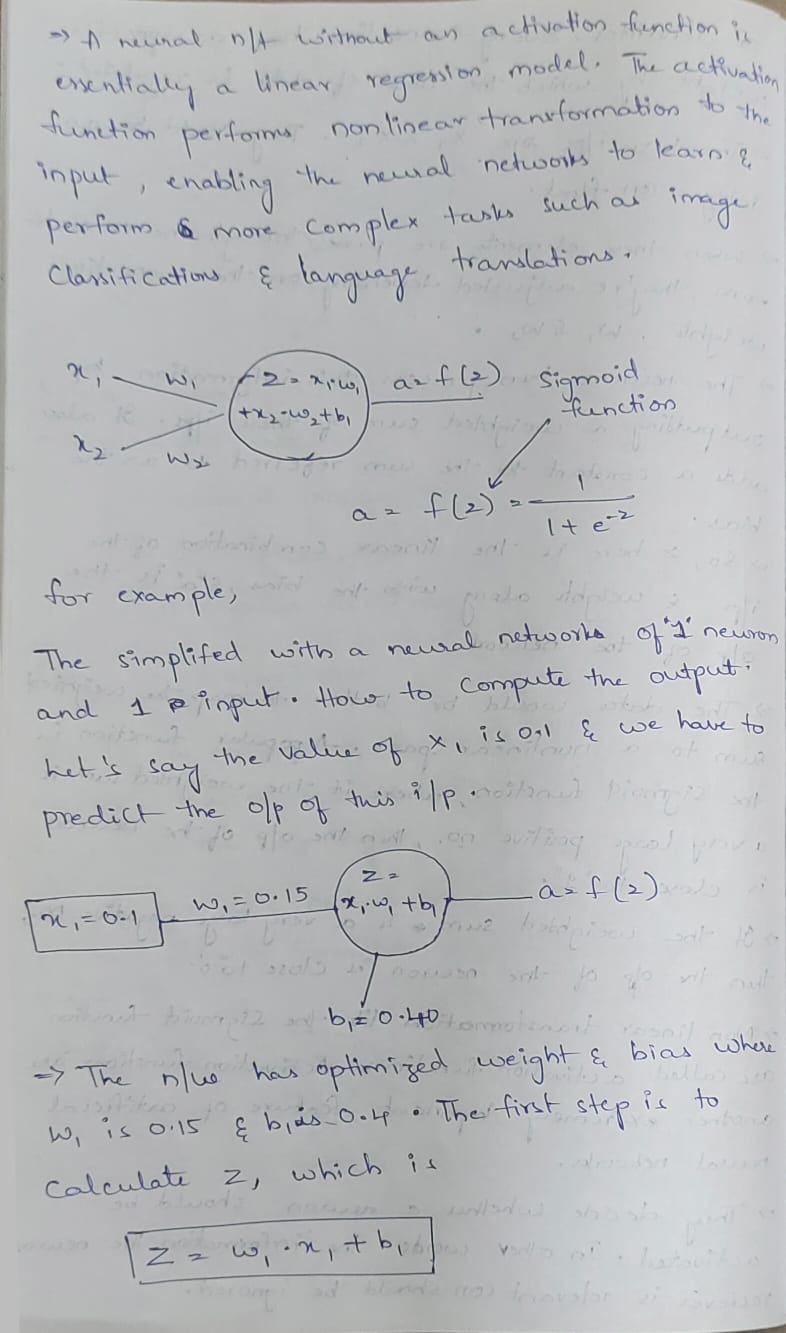 => A neural n/t without an activation function is
essentially a linear regression model. The activation
function performs nonlinear transformation to the
input, enabling the neural networks to learn &
perform more complex tasks such as image
Classifications & language translations.
x₁ w₁ z = x₁·w₁ a = f(z) Sigmoid
+x₂·w₂+b₁ function
x₂ w₂
a = f(z) = 1 / 1 + e^-z
for example,
The simplifed with a neural networks of "1" neuron
and 1 input. How to compute the output.
Let's say the value of x₁ is 0.1 & we have to
predict the o/p of this i/p.
z =
x₁=0.1 w₁=0.15 x₁·w₁+b₁ a = f(z)
b₁=0.40
=> The n/w has optimized weight & bias where
w₁ is 0.15 & b₁ is 0.4. The first step is to
Calculate z, which is
z = w₁·x₁ + b₁